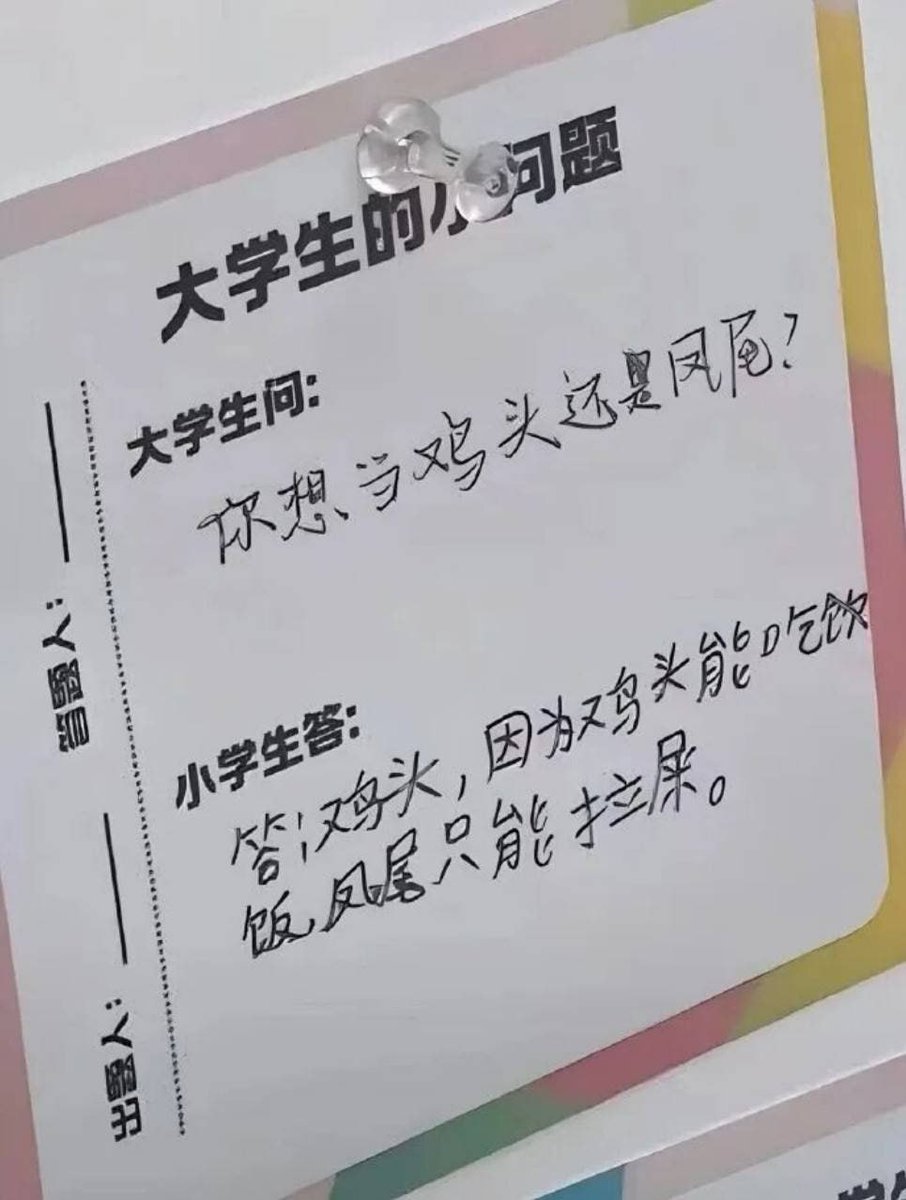 大学生的小问题
大学生问:
你想当鸡头还是凤尾?
小学生答:
答:鸡头,因为鸡头能吃饮
饭,凤尾只能拉屎。
答题人:
出题人: